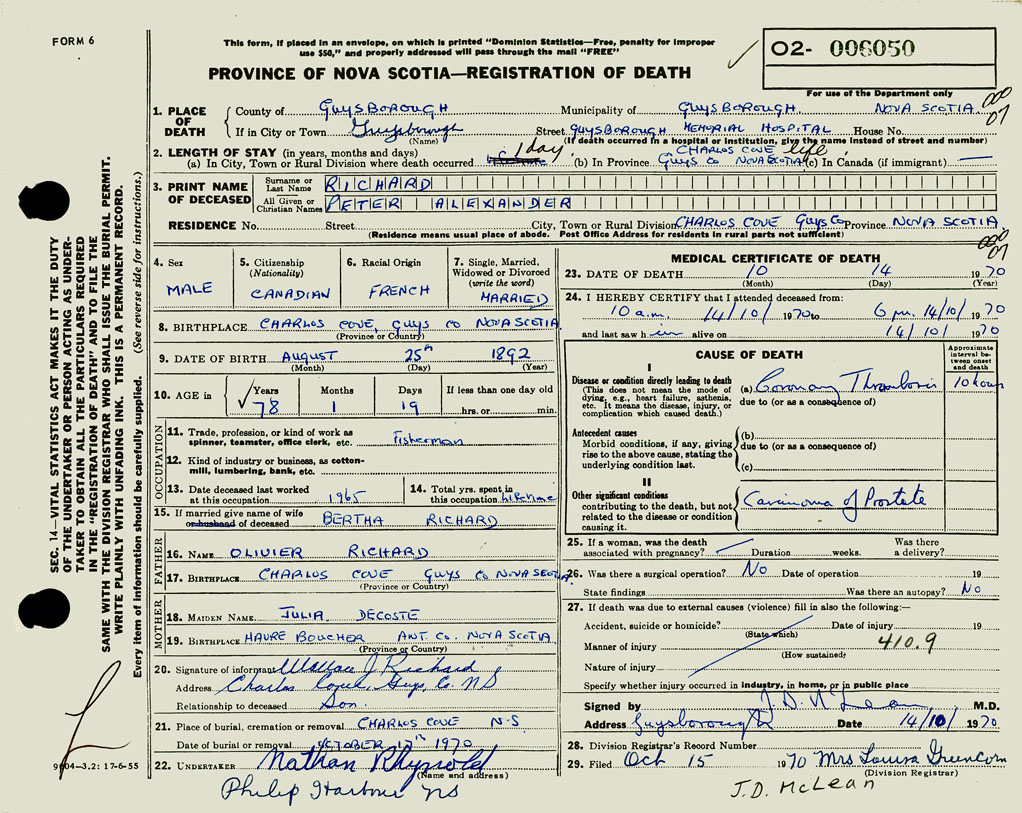 FORM 6
This form, if placed in an envelope, on which is printed "Dominion Statistics—Free, penalty for improper
use $50," and properly addressed will pass through the mail "FREE"
02- 006050
For use of the Department only
PROVINCE OF NOVA SCOTIA—REGISTRATION OF DEATH
SEC. 14—VITAL STATISTICS ACT MAKES IT THE DUTY
OF THE UNDERTAKER OR PERSON ACTING AS UNDER-
TAKER TO OBTAIN ALL THE PARTICULARS REQUIRED
IN THE "REGISTRATION OF DEATH" AND TO FILE THE
SAME WITH THE DIVISION REGISTRAR WHO SHALL ISSUE THE BURIAL PERMIT.
WRITE PLAINLY WITH UNFADING INK. THIS IS A PERMANENT RECORD.
Every item of information should be carefully supplied. (See reverse side for instructions.)
1. PLACE OF DEATH
County of GUYSBOROUGH Municipality of GUYSBOROUGH. NOVA SCOTIA.
000
07
If in City or Town Guysborough Street GUYSBOROUGH MEMORIAL HOSPITAL House No.
(Name) (If death occurred in a hospital or institution, give the name instead of street and number)
2. LENGTH OF STAY (in years, months and days)
(a) In City, Town or Rural Division where death occurred 1 day. (b) In Province CHARLOS COVE GUYS CO NOVA SCOTIA life (c) In Canada (if immigrant) —
3. PRINT NAME OF DECEASED
Surname or Last Name RICHARD
All Given or Christian Names PETER ALEXANDER
RESIDENCE No. Street City, Town or Rural Division CHARLOS COVE GUYS CO Province NOVA SCOTIA
(Residence means usual place of abode. Post Office Address for residents in rural parts not sufficient)
000
07
4. Sex
MALE
5. Citizenship
(Nationality)
CANADIAN
6. Racial Origin
FRENCH
7. Single, Married,
Widowed or Divorced
(write the word)
MARRIED
8. BIRTHPLACE CHARLOS COVE, GUYS CO NOVA SCOTIA
(Province or Country)
9. DATE OF BIRTH AUGUST 25th 1892
(Month) (Day) (Year)
10. AGE in
Years Months Days If less than one day old
78 1 19 hrs. or min.
OCCUPATION
11. Trade, profession, or kind of work as
spinner, teamster, office clerk, etc. Fisherman
12. Kind of industry or business, as cotton-
mill, lumbering, bank, etc.
13. Date deceased last worked
at this occupation 1965
14. Total yrs. spent in
this occupation Lifetime
15. If married give name of wife
or husband of deceased BERTHA RICHARD
FATHER
16. NAME OLIVIER RICHARD
17. BIRTHPLACE CHARLOS COVE GUYS CO NOVA SCOTIA
(Province or Country)
MOTHER
18. MAIDEN NAME JULIA DECOSTE
19. BIRTHPLACE HAVRE BOUCHER ANT CO. NOVA SCOTIA
(Province or Country)
20. Signature of informant Wallace J Richard
Address Charlos Cove Guys, Co. NS
Relationship to deceased Son.
21. Place of burial, cremation or removal CHARLOS COVE N.S
Date of burial or removal OCTOBER 17th 1970
22. UNDERTAKER Nathan Rhynold
(Name and address)
Philip Harbour NS
9604—3.2: 17-6-55
MEDICAL CERTIFICATE OF DEATH
23. DATE OF DEATH 10 14 1970
(Month) (Day) (Year)
24. I HEREBY CERTIFY that I attended deceased from:
10 a.m. 14/10/ 1970 to 6 pm. 14/10/ 1970
and last saw h im alive on 14/10/ 1970
CAUSE OF DEATH
Approximate
interval be-
tween onset
and death
I
Disease or condition directly leading to death
(This does not mean the mode of
dying, e.g., heart failure, asthenia,
etc. It means the disease, injury, or
complication which caused death.)
(a) Coronary Thrombosis 10 hours
due to (or as a consequence of)
Antecedent causes
Morbid conditions, if any, giving
rise to the above cause, stating the
underlying condition last.
(b)
due to (or as a consequence of)
(c)
II
Other significant conditions
contributing to the death, but not
related to the disease or condition
causing it.
Carcinoma of Prostate
25. If a woman, was the death
associated with pregnancy? Duration weeks. Was there
a delivery?
26. Was there a surgical operation? No Date of operation 19
State findings Was there an autopsy? No
27. If death was due to external causes (violence) fill in also the following:—
Accident, suicide or homicide? Date of injury 19
(State which)
Manner of injury 410.9
(How sustained)
Nature of injury
Specify whether injury occurred in industry, in home, or in public place
Signed by J. D. McLean M.D.
Address Guysborough Date 14/10/ 1970
28. Division Registrar's Record Number
29. Filed Oct 15 1970 Mrs Louisa Greencorn
(Division Registrar)
J.D. McLean